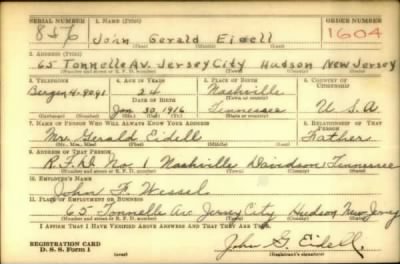 SERIAL NUMBER 1. NAME (Print) ORDER NUMBER
856 John Gerald Eidell 1604
(First) (Middle) (Last)
2. ADDRESS (Print)
65 Tonnelle Av. Jersey City Hudson New Jersey
(Number and street or R. F. D. number) (Town) (County) (State)
3. TELEPHONE 4. AGE IN YEARS 5. PLACE OF BIRTH 6. COUNTRY OF CITIZENSHIP
Bergen 4-9091 24 Nashville
DATE OF BIRTH (Town or county)
Jan. 30, 1916 Tennessee U.S.A
(Exchange) (Number) (Mo.) (Day) (Yr.) (State or country)
7. NAME OF PERSON WHO WILL ALWAYS KNOW YOUR ADDRESS 8. RELATIONSHIP OF THAT PERSON
Mr. Gerald Eidell Father
(Mr., Mrs., Miss) (First) (Middle) (Last)
9. ADDRESS OF THAT PERSON
R.F.D. No. 1 Nashville Davidson Tennessee
(Number and street or R. F. D. number) (Town) (County) (State)
10. EMPLOYER'S NAME
John F. Wessel
11. PLACE OF EMPLOYMENT OR BUSINESS
65 Tonnelle Ave Jersey City Hudson New Jersey
(Number and street or R. F. D. number) (Town) (County) (State)
I AFFIRM THAT I HAVE VERIFIED ABOVE ANSWERS AND THAT THEY ARE TRUE.
REGISTRATION CARD
D. S. S. Form 1 John G. Eidell.
(Registrant's signature)